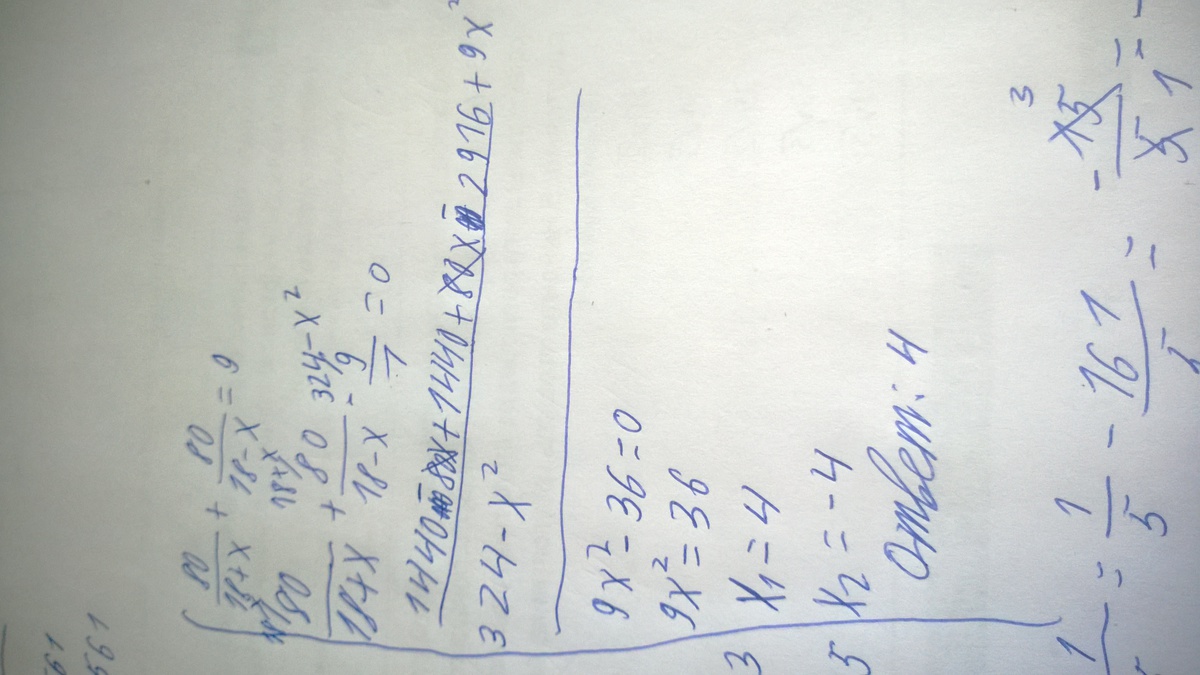 561
561
80/(18+x) + 80/(18-x) = 9
18+x 324-x²
80/(18+x) + 80/(18-x) - 9/1 = 0
1440-80x+1440+80x-2916+9x²
324-x²
9x²-36=0
9x²=36
3 x₁=4
5 x₂=-4
Ответ: 4
= 1/5 - 161/5 =
3
- 15/5 1 =